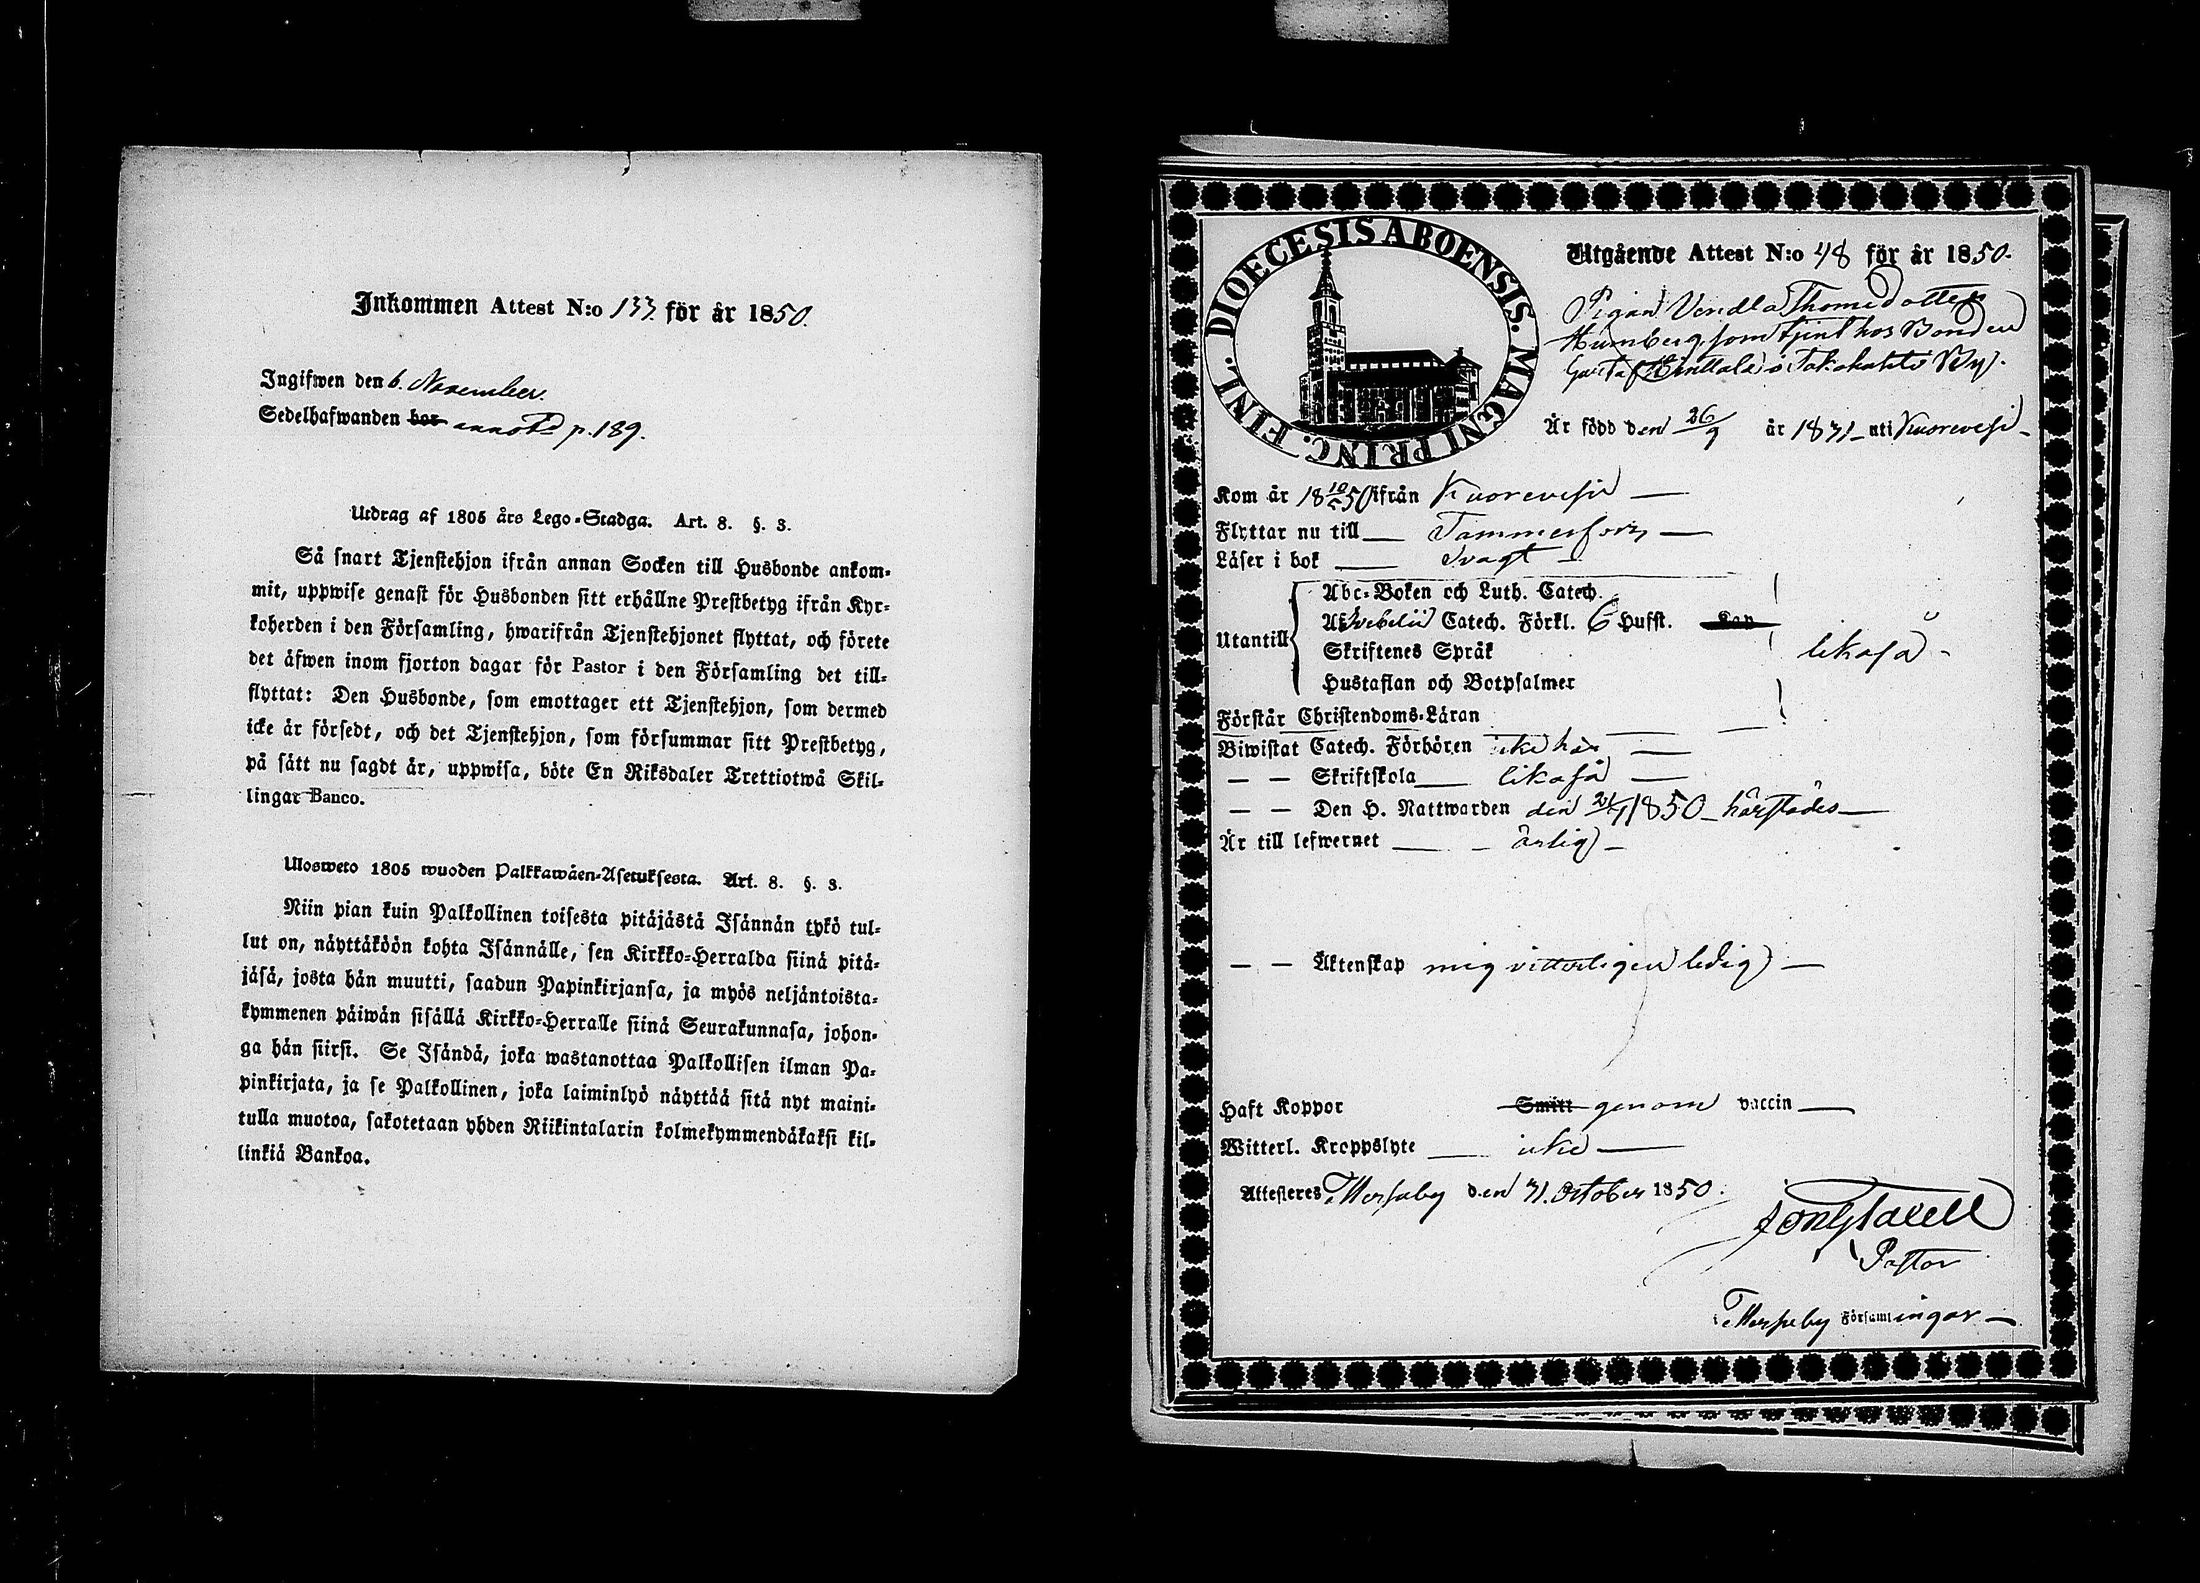 Inkommen Attest N:o 133. för år 1850.
Ingifwen den 6. November.
Sedelhafwanden bor annot. p. 189.
Utdrag af 1805 års Lego-Stadga. Art. 8. §. 3.
Så snart Tjenstehjon ifrån annan Socken till Husbonde ankom-
mit, uppwise genast för Husbonden sitt erhållne Prestbetyg ifrån Kyr-
koherden i den Församling, hwarifrån Tjenstehjonet flyttat, och förete
det äfwen inom fjorton dagar för Pastor i den Församling det till-
flyttat: Den Husbonde, som emottager ett Tjenstehjon, som dermed
icke är försedt, och det Tjenstehjon, som försummar sitt Prestbetyg,
på sätt nu sagdt är, uppwisa, böte En Riksdaler Trettiotwå Skil-
lingar Banco.
Ulosweto 1805 wuoden Palkkawäen-Asetuksesta. Art. 8. §. 3.
Niin pian kuin Palkollinen toisesta pitäjästä Isännän tykö tul-
lut on, näyttäköön kohta Isännälle, sen Kirkko-Herralda siinä pitä-
jäsä, josta hän muutti, saadun Papinkirjansa, ja myös neljäntoista-
kymmenen päiwän sisällä Kirkko-Herralle siinä Seurakunnasa, johon-
ga hän siirsi. Se Isändä, joka wastanottaa Palkollisen ilman Pa-
pinkirjata, ja se Palkollinen, joka laiminlyö näyttää sitä nyt maini-
tulla muotoa, sakotetaan yhden Riikintalarin kolmekymmendäkaksi kil-
linkiä Bankoa.
DIOECESIS ABOENSIS. MAGNI PRINC. FINL.
Utgående Attest N:o 48 för år 1850.
Pigan Vendla Thomedotter
Humberg, som tjent hos Bonden
Gustaf i By.
Är född den 26/9 år 1831 uti Kuorevesi
Kom år 18 50 ifrån Kuorevesi
Flyttar nu till Tammerfors
Läser i bok Svagt
Utantill
Abc-Boken och Luth. Catech.
Af Svebelii Catech. Förkl. 6 Hufst. Kap
Skriftenes Språk
Hustaflan och Botpsalmer
likaså
Förstår Christendoms-Läran
Biwistat Catech. Förhören icke här
— — Skriftskola likaså
— — Den H. Nattwarden den 1850 härstädes
Är till lefwernet ärlig
— — Äktenskap mig vitterligen ledig
Haft Koppor Smitt genom vaccin
Witterl. Kroppslyte icke
Attesteres Messuby den 31. October 1850.
Pastor
Messuby Församlingar